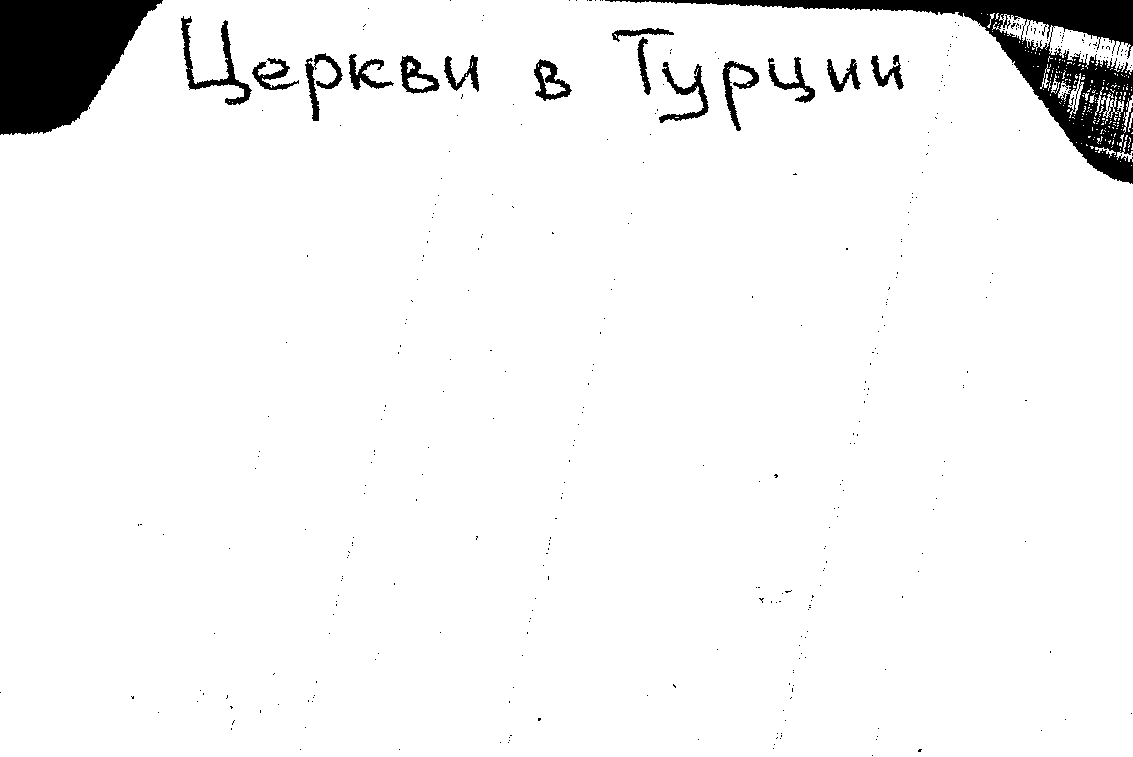 Церкви в Турции